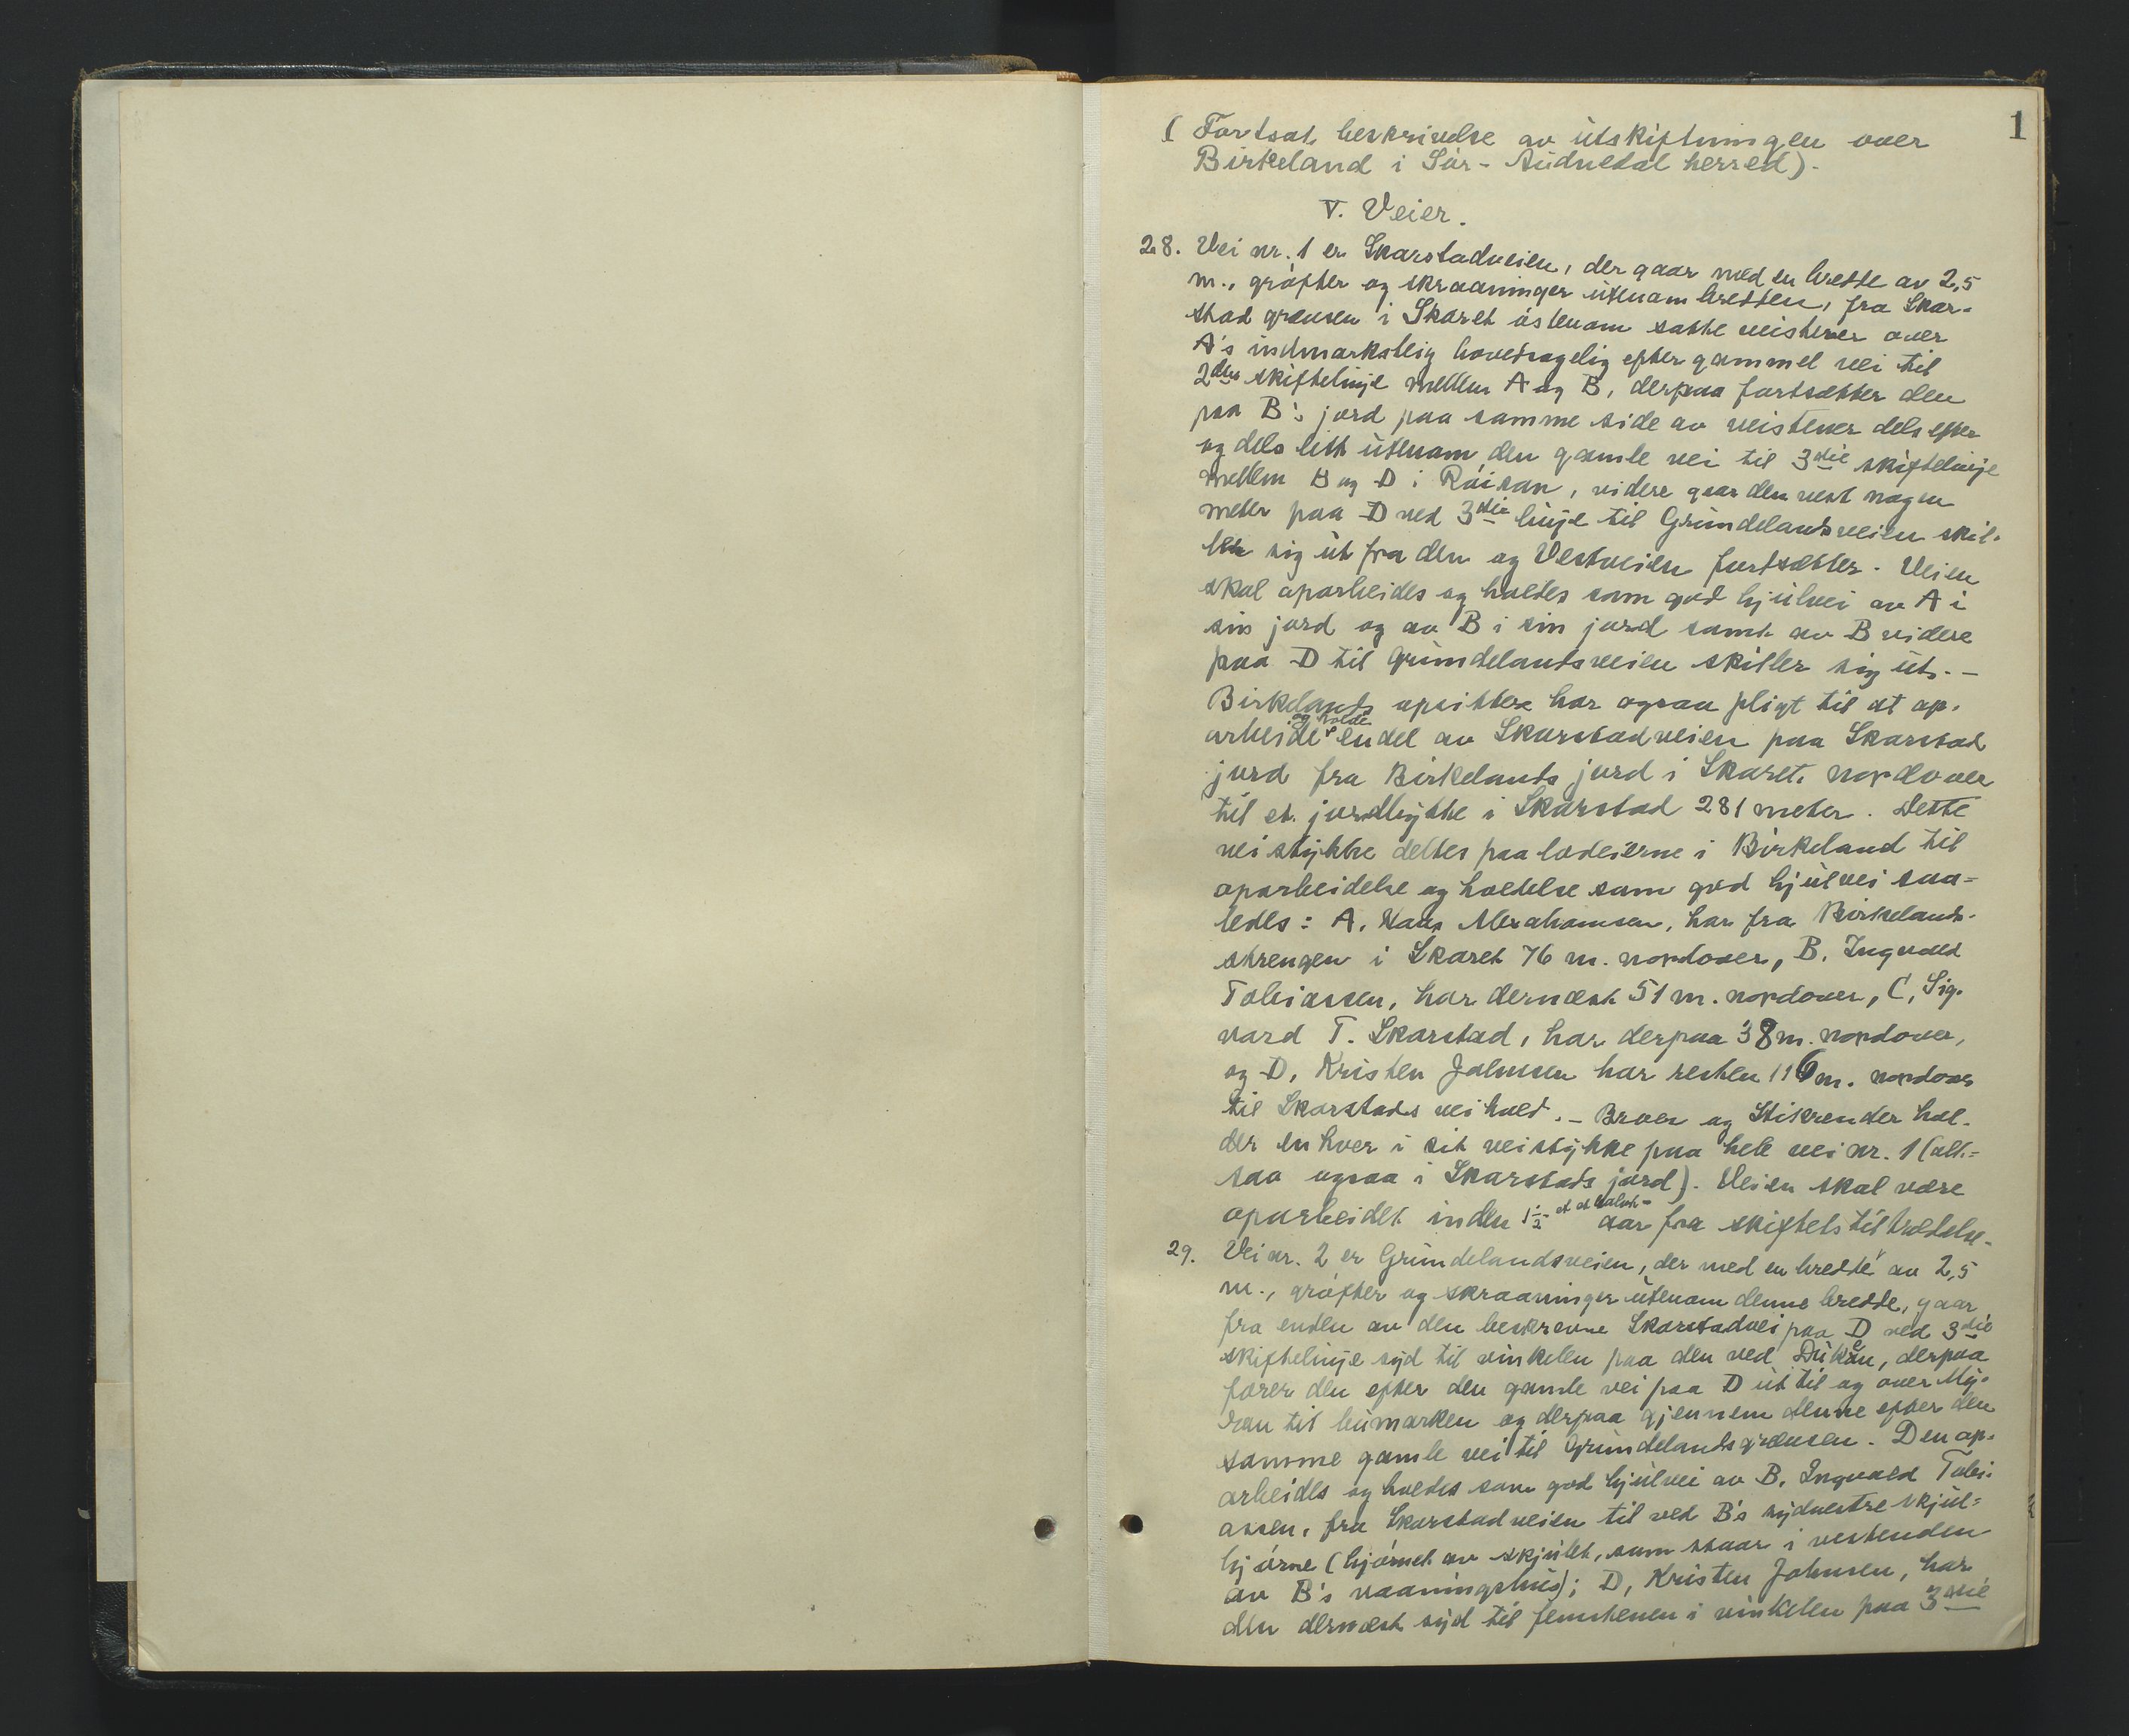 1
( Fortsat beskrivelse av utskiftningen over
Birkeland i Sør-Audnedal herred).
V. Veier.
28. Vei nr. 1 er Skarstadveien, der gaar med en bredde av 2,5
m., grøfter og skraaninger utenom bredden, fra Skar-
stad grænsen i Skaret østenom satte veistener over
A's indmarksteig hovedsagelig efter gammel vei til
2den skiftelinje mellem A og B, derpaa fortsætter den
paa B's jord paa samme side av veistener dels efter
og dels litt utenom den gamle vei til 3die skiftelinje
mellem B og D i Røisan, videre gaar den vest nogen
meter paa D ved 3die linje til Grundelandsveien skil-
ler sig ut fra den og Vestveien fortsætter. Veien
skal oparbeides og holdes som god hjulvei av A i
sin jord og av B i sin jord samt av B videre
paa D til Grundelandsveien skiller sig ut. -
Birkelands opsittere har ogsaa pligt til at op-
arbeide og holde endel av Skarstadveien paa Skarstad
jord fra Birkelands jord i Skaret nordover
til et jordstykke i Skarstad 281 meter. Dette
vei stykke deltes paa lodeierne i Birkeland til
oparbeidelse og holdelse som god hjulvei saa-
ledes: A. Haas Abrahamsen, har fra Birkelands-
strengen i Skaret 76 m. nordover, B. Ingvald
Tobiassen, har dernæst 51 m. nordover, C, Sig-
vard T. Skarstad, har derpaa 38 m. nordover,
og D, Kristen Johnsen har resten 116 m. nordover
til Skarstads vei hold. - Broer og Stikrender hol-
der enhver i sit veistykke paa hele vei nr. 1 (alt-
saa ogsaa i Skarstads jord). Veien skal være
oparbeidet inden 1½ - et et halvt - aar fra skiftets tiltrædelse.
29. Vei nr. 2 er Grundelandsveien, der med en bredde av 2,5
m., grøfter og skraaninger utenom denne bredde, gaar
fra enden av den beskrevne Skarstadvei paa D ved 3die
skiftelinje syd til vinkelen paa den ved Duken, derpaa
fører den efter den gamle vei paa D ut til og over My-
ran til heimarken og derpaa gjennem denne efter den
samme gamle vei til Grundelandsgrænsen. Den op-
arbeides og holdes som god hjulvei av B. Ingvald Tobi-
assen, fra Skarstadveien til ved B's sydvestre skjul-
hjørne (hjørnet av skjulet, som staar i vestenden
av B's vaaningshus); D, Kristen Johnsen, har
den dernæst syd til femstenen i vinkelen paa 3die